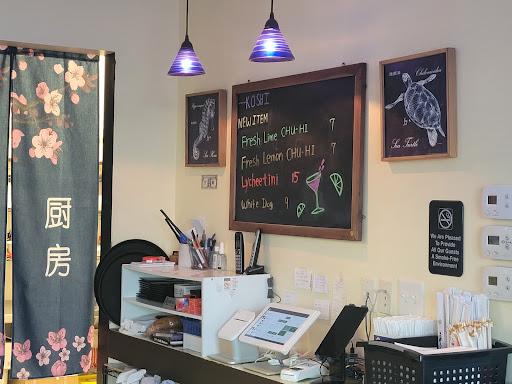 厨
房
KOSHI
NEW ITEM
Fresh Lime CHU-HI 7
Fresh Lemon CHU-HI 7
Lycheetini 15
White Dog 9
Chelonioidea
Sea Turtle
We Are Pleased
To Provide
All Our Guests
A Smoke-Free
Environment